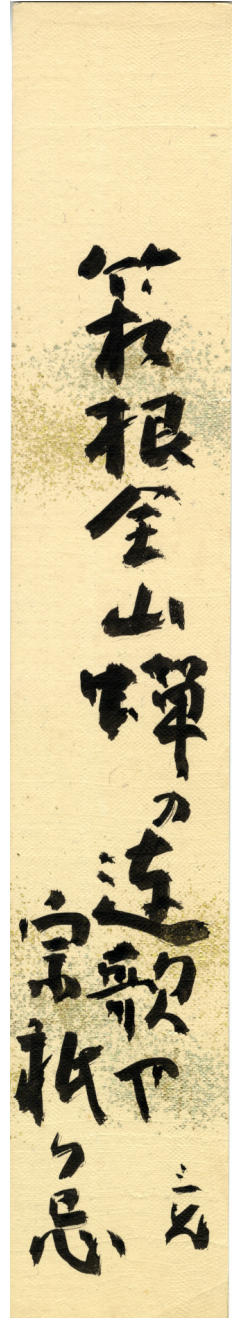 箱根全山蝉の連歌や
宗祇の忌